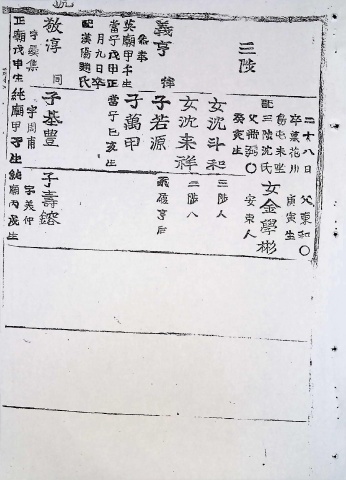 三陟
二十八日
卒墓花川
負兆未坐
配三陟沈氏
父
癸亥生
父東和〇
庚寅生
女金學彬
安東人
女沈斗和
三陟人
女沈来祥
三陟人
子若源
義
子萬甲
當宁乙亥生
義亨
参奉
英廟甲午生
當宁戊甲正
月九日卒
配漢陽趙氏
敬淳
字
正廟戊申生
子基豊
字周甫
純廟甲子生
子壽鎔
字美仲
純廟丙戌生